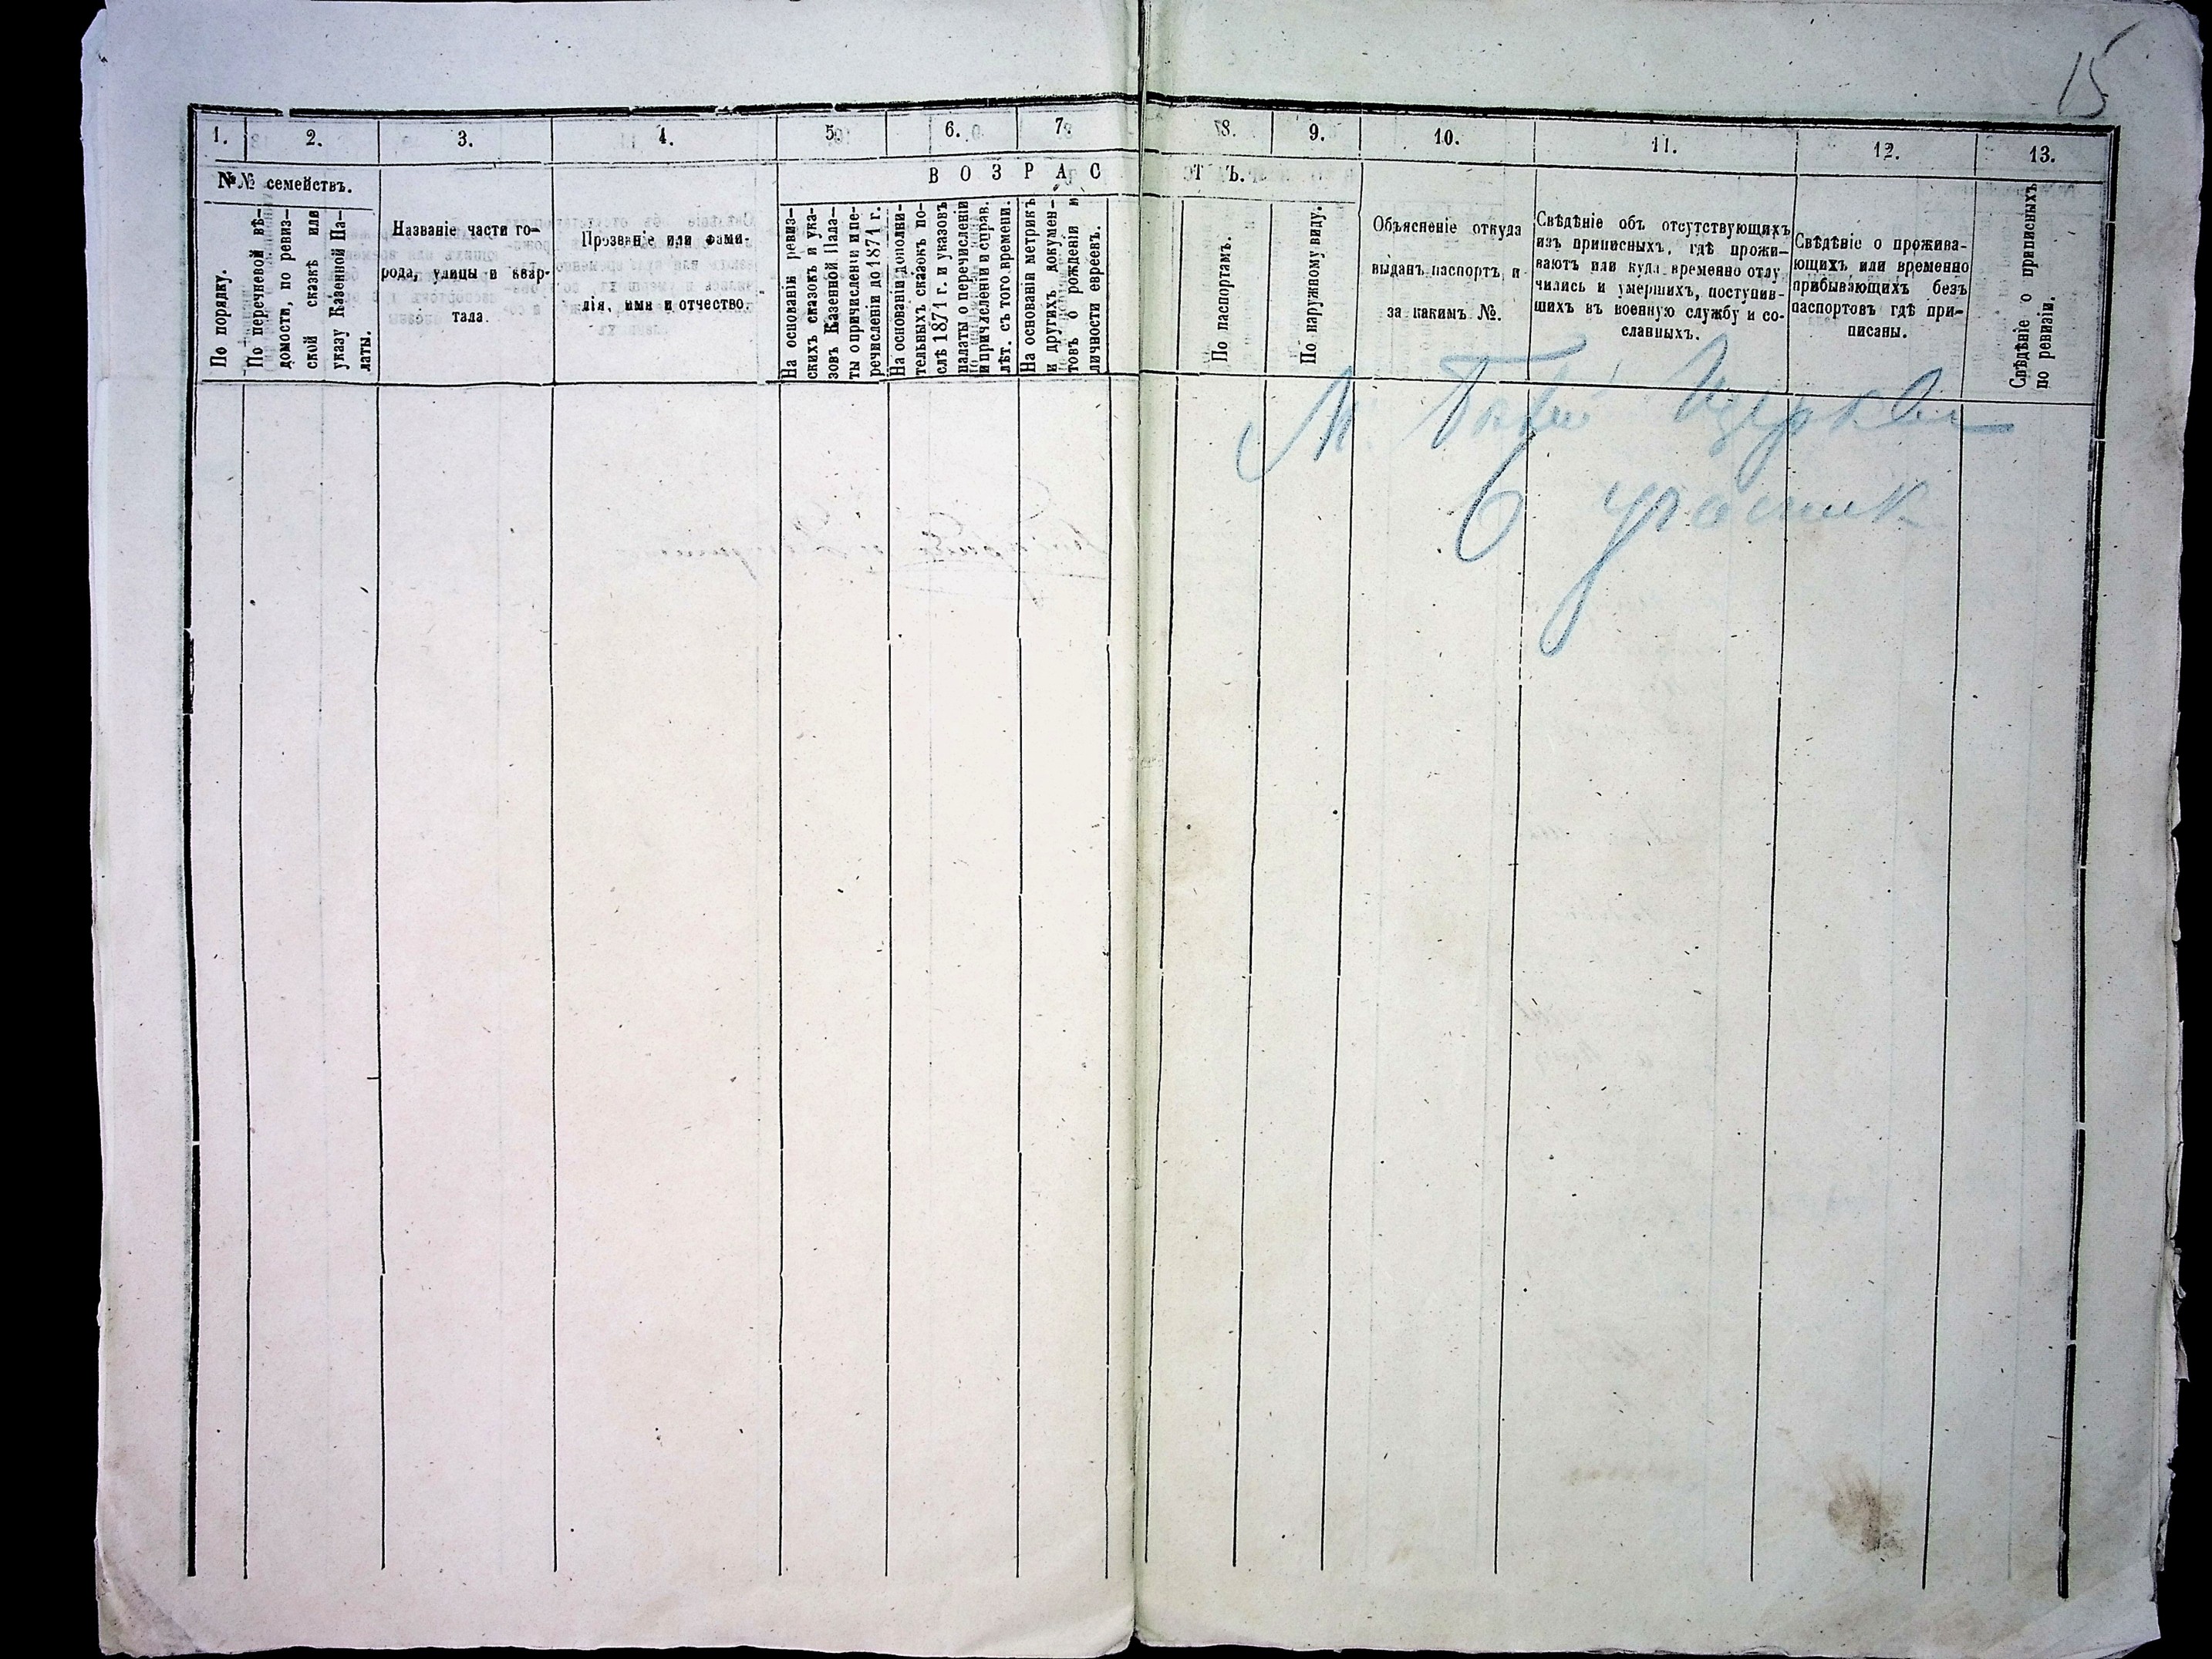 15
1. 2. 3. 4. 5. 6. 7. 8. 9. 10. 11. 12. 13.
№№ семействъ.
В О З Р А С Т Ъ.
По порядку.
По перечневой вѣ-
домости, по ревиз-
ской сказкѣ или
указу Казенной Па-
латы.
Названіе части го-
рода, улицы и квар-
тала.
Прозваніе или фами-
лія, имя и отчество.
На основаніи ревиз-
скихъ сказокъ и ука-
зовъ Казенной Пала-
ты о причисленіи и пе-
речисленіи до 1871 г.
На основаніи дополни-
тельныхъ сказокъ по-
слѣ 1871 г. и указовъ
палаты о перечисленіи
и причисленіи и справ.
лѣт. съ того времени.
На основаніи метрикъ
и другихъ докумен-
товъ о рожденіи и
личности евреевъ.
По паспортамъ.
По наружному виду.
Объясненіе откуда
выданъ паспортъ и
за какимъ №.
Свѣдѣніе объ отсутствующихъ
изъ приписныхъ, гдѣ прожи-
ваютъ или куда временно отлу
чились и умершихъ, поступив-
шихъ въ военную службу и со-
сланныхъ.
Свѣдѣніе о прожива-
ющихъ или временно
прибывающихъ безъ
паспортовъ гдѣ при-
писаны.
Свѣдѣніе о приписныхъ
по ревизіи.
М. Бѣлой Церкви
6 участок